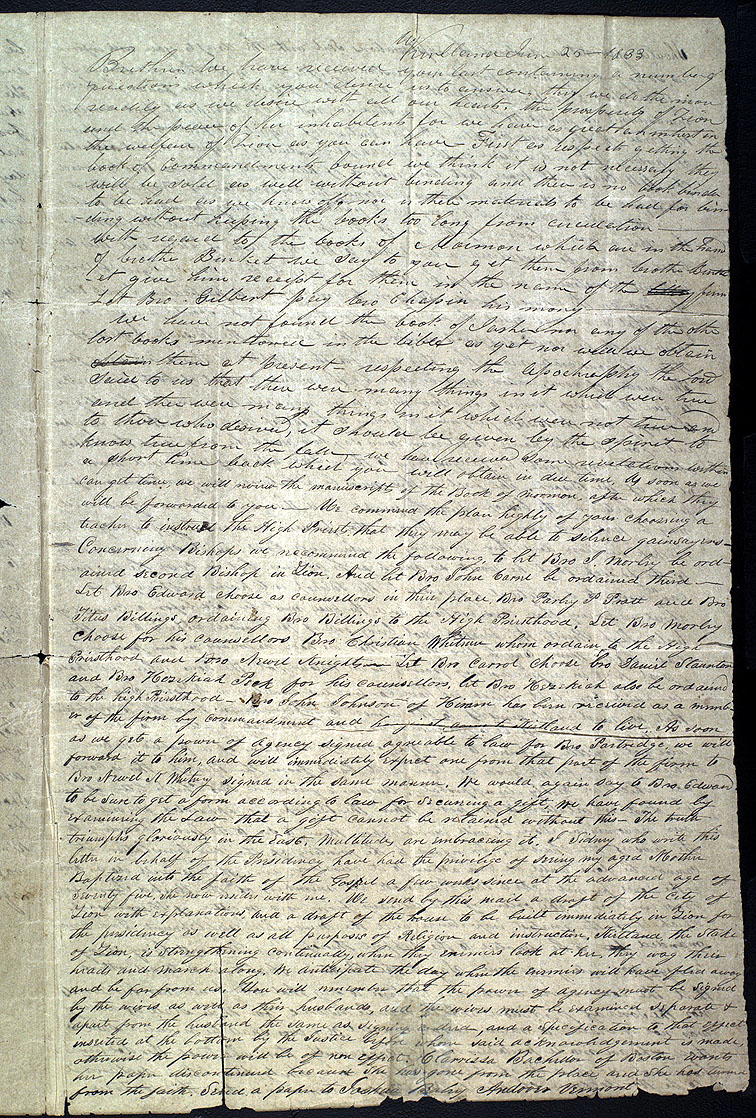 Kirtland June 25 - 1833
Brethren We have received your last containing a number of
questions which you desire us to answer, this we do the more
readily as we desire with all our hearts, the prosperity of Zion
and the peace of her inhabitents for we have as great an interest in
the welfare of Zion as you can have First as respects getting the
book of Commandments bound we think it is not necessary they
will be sold as well without binding and there is no book binder
to be had as we know of, nor is there materials to be had for bin
-ding without keeping the books too long from circulation
With regard to the books of Mormon which are in the hand
of brothe Burket we say to you get them from brothe Burke
-et give him receipt for them in the name of the firm
Let Bro Gilbert pay bro Chapin his money
We have not found the book of Jasher nor any of the othe
lost books mentioned in the bible as yet nor will we obtain
them at present - respecting the Apochraphy the Lord
Said to us that there were many things in it which were true
and there were many things in it which were not true and
to those who desired, it should be given by the spirit to
know true from the false - we have received some revelations within
a short time back which you will obtain in due time, As soon as we
can get time, we will review the manuscripts of the Book of Mormon, after which they
will be forwarded to you - We commend the plan highly of your choosing a
teacher to instruct the High Priest that they may be able to silence gainsayers -
Concerning Bishops we recommend the following, to let Bro I. Morley be ord
ained second Bishop in Zion, And let Bro John Carrel be ordained third -
Let Bro Edward choose as counsellors in their place Bro Parley P Pratt and Bro
Titus Billings, ordaining Bro Billings to the High Priesthood, Let Bro Morley
choose for his counsellors Bro Christian Whitmer whom ordain to the High
Priesthood and Bro Newel Knight - Let Bro Carrol choose bro Daniel Staunton
and Bro Hezekiah Peck for his counsellors, let Bro Hezekiah also be ordained
to the high Priesthood - Bro John Johnson of Hiram has been received as a memb
er of the firm by commandment and Kirtland to live, As soon
as we get a power of agency signed agreeable to law for Bro Partridge, we will
forward it to him, and will immediately expect one from that part of the firm to
Bro Newel K Whitney signed in the same manner, We would again say to Bro. Edward
to be sure to get a form according to law for securing a gift, We have found by
examining the Law that a gift cannot be retained without this - The truth
triumphs gloriously in the East, Multitudes are embracing it, I Sidney who write this
letter in behalf of the Presidency have had the privilege of seing my aged Mother
Baptized into the faith of the Gospel a few weeks since at the advanced age of
Seventy five, she now resides with me. We send by this mail a draft of the city of
Zion with explanations, and a draft of the house to be built immediately in Zion for
the presidency as well as all purposes of Religion and instruction, Kirtland, the Stake
of Zion, is strengthening continually, when they enemies look at her, they wag their
heads and march along, We anticipate the day when the enemies will have fled away
and be far from us. You will remember that the power of agency must be signed
by the wives as well as their husbands, and the wives must be examined separate &
apart from the husband the same as signing a deed, and a specification to that effect
inserted at the bottom by the Justice before whom said acknowledgement is made
otherwise the power will be of non effect, Clarrissa Bachelder of Boston wants
her paper discontinued because she has gone from the place and she has turned
from the faith. Send a paper to Joshua Baily Andover Vermont